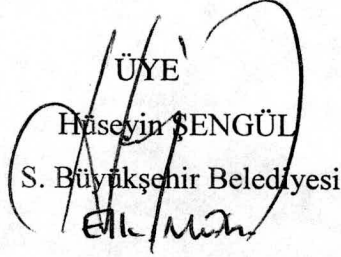 ÜYE
Hüseyin ŞENGÜL
S. Büyükşehir Belediyesi